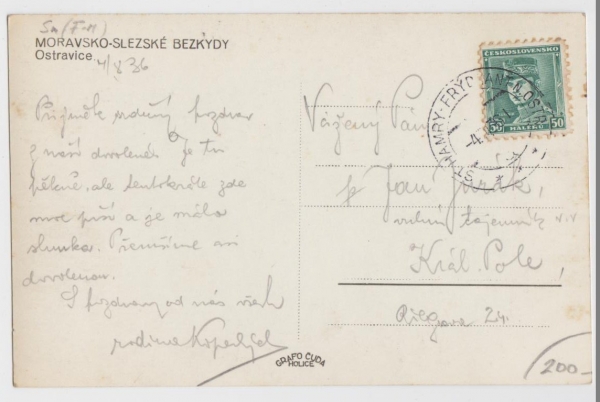 Sn (F-M)
MORAVSKO-SLEZSKÉ BEZKYDY
Ostravice
4/8 36
Přijměte srdečný pozdrav
z naší dovolené. Je tu
pěkně, ale tentokráte zde
moc prší a je málo
slunka.
dovolenou.
S pozdravem od nás všech
rodina
ČESKOSLOVENSKO
50 50
HALÉŘŮ
ST. HAMRY-FRÝDLANT N. OSTR.
Vážený Pán
p. Jan Jurák,
vrchní tajemník v.v.
Král. Pole,
Riegrova 24.
GRAFO ČUDA
HOLICE
200-